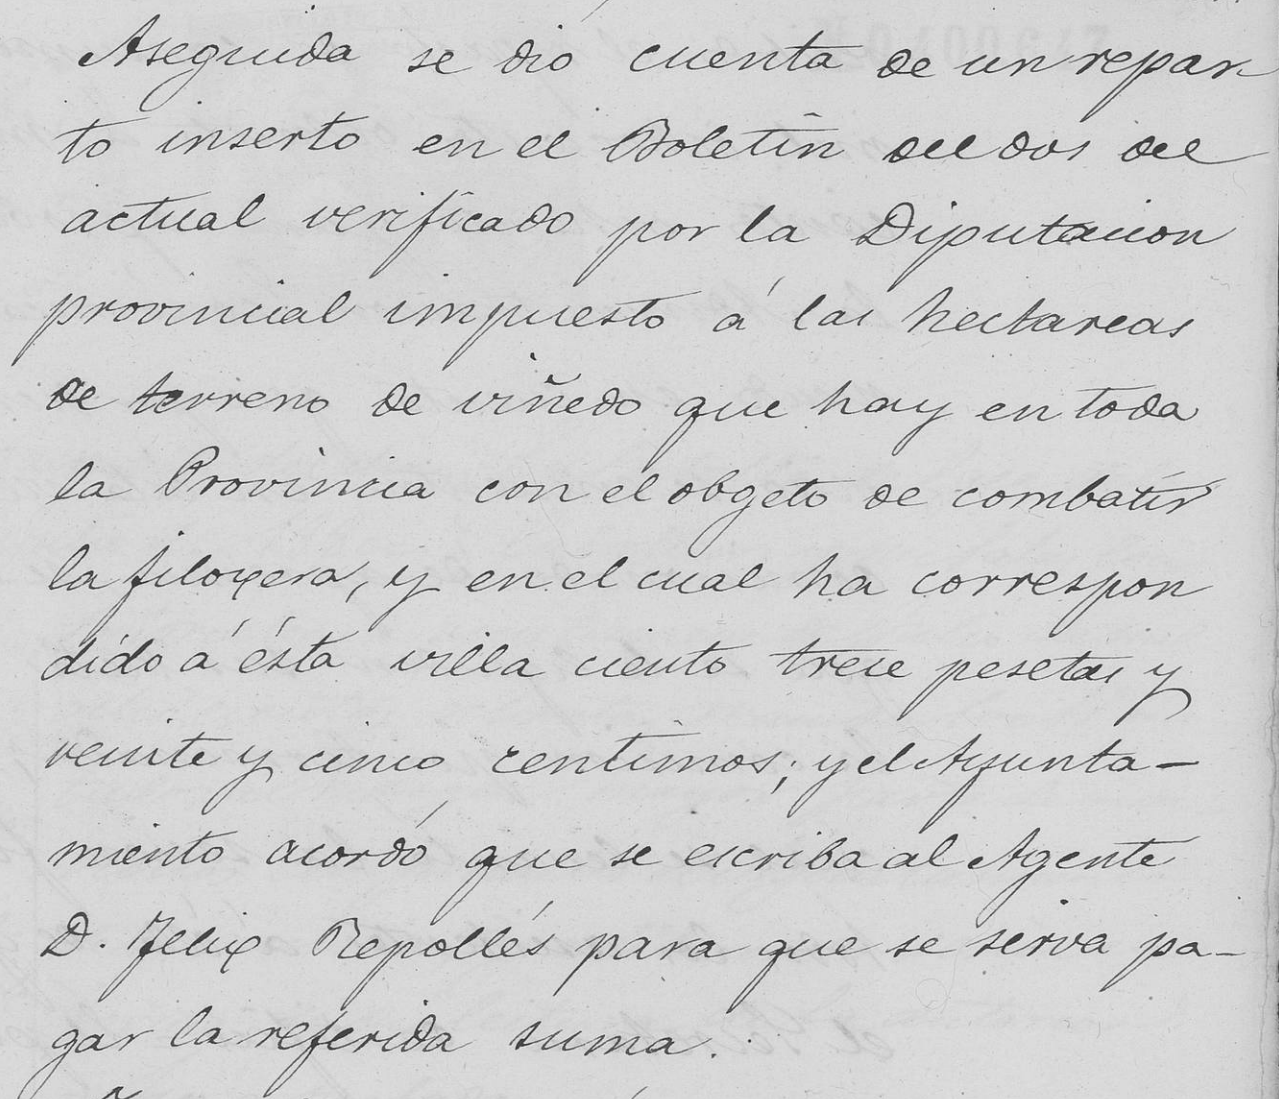 Aseguida se dio cuenta de un repar-
to inserto en el Boletin del dos del
actual verificado por la Diputacion
provincial impuesto á las hectareas
de terreno de viñedo que hay en toda
la Provincia con el obgeto de combatir
la filoxera, y en el cual ha correspon
dido á ésta villa ciento trece pesetas y
veinte y cinco centimos; y el Ayunta-
miento acordó que se escriba al Agente
D. Felix Repollés para que se serva pa-
gar la referida suma.